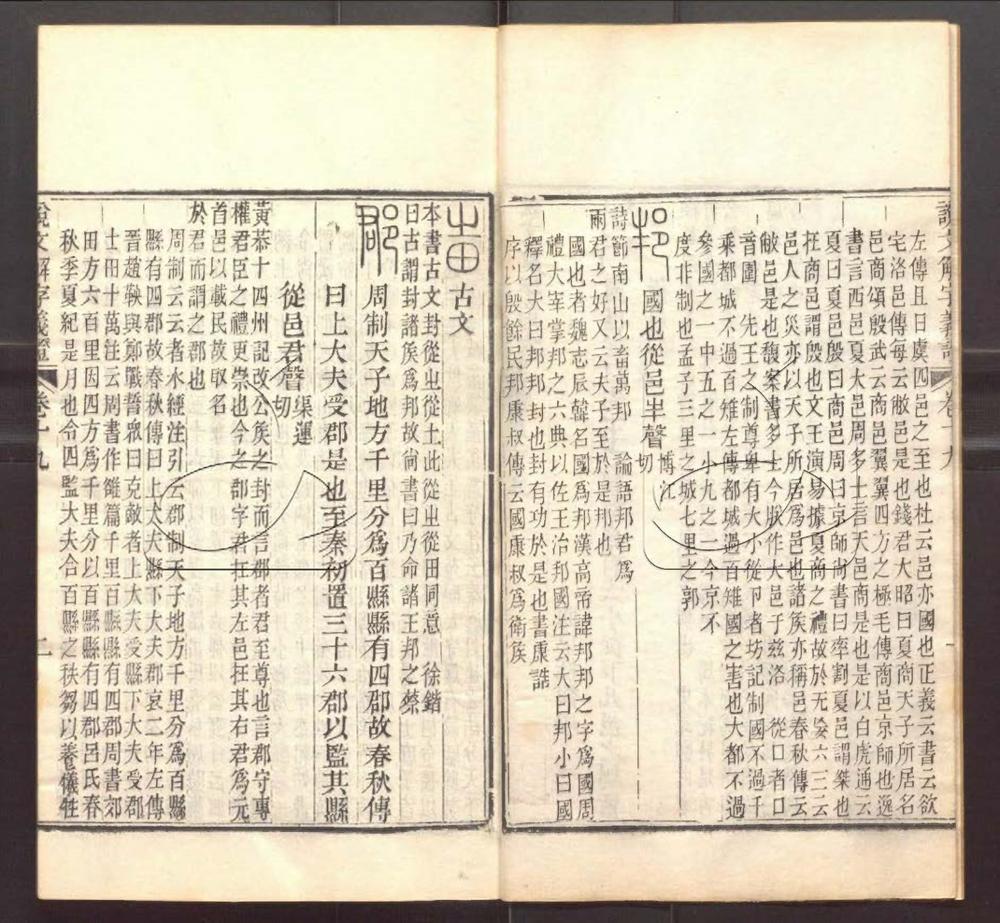 說文解字義證 卷十九
左傳且日虞四邑之至也杜云邑亦國也正義云書云欲
宅洛邑傳每云敝邑是也錢君大昭曰夏商天子所居名
邑商頌殷武云商邑翼翼四方之極毛傳商邑京師也逸
書言西邑夏大邑周多士言天邑商是也是以白虎通云
夏曰夏邑殷曰商邑周曰京師尚書曰率割夏邑謂桀也
在商邑謂殷也文王演易據夏商之禮故於无妄六三云
邑人之災亦以天子所居爲邑也諸矦亦稱邑春秋傳云
敝邑是也馥案書多士今朕作大邑于兹洛 從口者口
音圍 先王之制尊卑有大小從卪者坊記制國不過千
乘都城不過百雉左傳都城過百雉國之害也大都不過
參國之一中五之一小九之一今京不
度非制也孟子三里之城七里之郭
邦 國也從邑丰聲 博江切
詩節南山以畜萬邦 論語邦君爲
兩君之好又云夫子至於是邦也
國也者魏志辰韓名國爲邦漢高帝諱邦邦之字爲國周
禮大宰掌邦之六典以佐王治邦國注云大曰邦小曰國
釋名大曰邦邦封也封有功於是也書康誥
序以殷餘民邦康叔傳云國康叔爲衛矦
古文
本書古文封從㞢從土此從㞢從田同意 徐鍇
曰古謂封諸矦爲邦故尚書曰乃命諸王邦之蔡
郡 周制天子地方千里分爲百縣縣有四郡故春秋傳
曰上大夫受郡是也至秦初置三十六郡以監其縣
從邑君聲 渠運切
黃恭十四州記改公矦之封而言郡者君至尊也言郡守專
權君臣之禮更崇也今之郡字君在其左邑在其右君爲元
首邑以載民故取名
於君而謂之郡也
周制云云者水經注引云郡制天子地方千里分爲百縣
縣有四郡故春秋傳曰上大夫縣下大夫郡哀二年左傳
晉趙鞅與鄭戰誓眾曰克敵者上大夫受縣下大夫受郡
士田十萬注云周書作雒篇千里百縣縣有四郡周書郊
田方六百里因四方爲千里分以百縣縣有四郡呂氏春
秋季夏紀是月也令四監大夫合百縣之秩芻以養犧牲
說文解字義證 卷十九 二